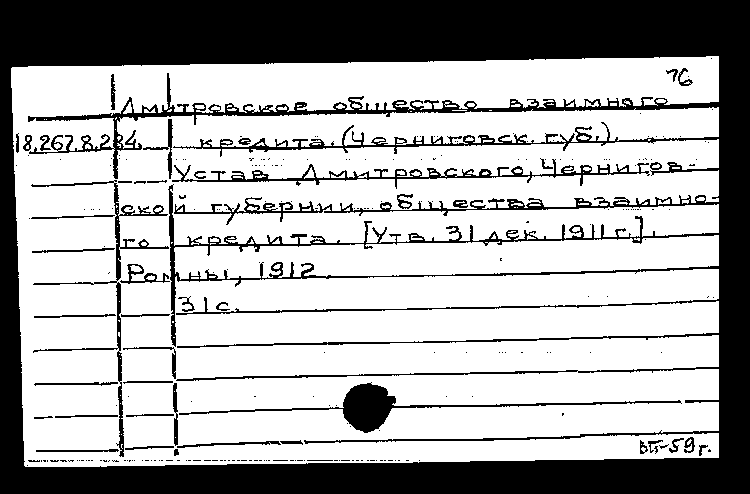 76
Дмитровское общество взаимного
18.267.8.284. кредита. (Черниговск. губ.).
Устав Дмитровского, Чернигов-
ской губернии, общества взаимно-
го кредита. [Утв. 31 дек. 1911 г.].
Ромны, 1912.
31 с.
59 г.